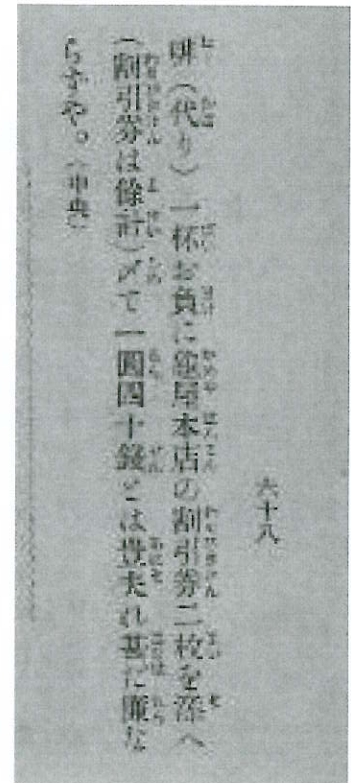 六十八
啡(代り)一杯お負に龜屋本店の割引券二枚を添へ
(割引券は餘計)〆て一圓四十錢とは豈夫れ甚だ廉な
らずや。(中央)